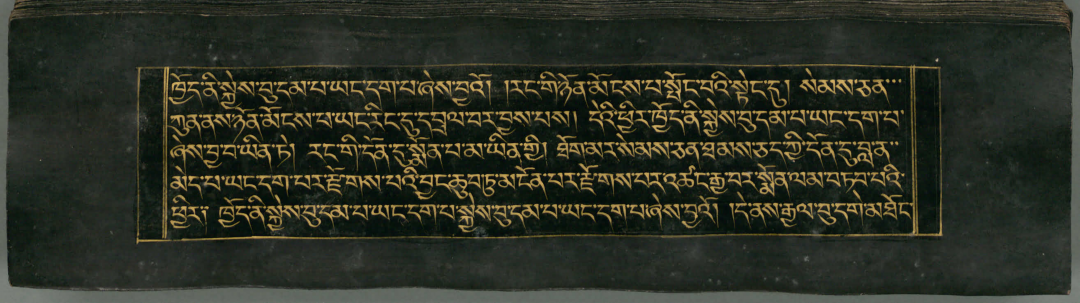 ཁྱོད་ནི་སྐྱེས་བུ་དམ་པ་ཡང་དག་པ་ཞེས་བྱའོ། །རང་གི་ཉོན་མོངས་པ་སྤོང་པའི་སྟེང་དུ། སེམས་ཅན་
ཀུན་ནས་ཉོན་མོངས་པ་ཡང་རིང་དུ་དབྲལ་བར་བྱས་པས། དེའི་ཕྱིར་ཁྱོད་ནི་སྐྱེས་བུ་དམ་པ་ཡང་དག་པ་
ཞེས་བྱ་བ་ཡིན་ཏེ། རང་གི་དོན་དུ་སྨོན་པ་མ་ཡིན་གྱི། ཐོག་མར་སེམས་ཅན་ཐམས་ཅད་ཀྱི་དོན་དུ་བླན་
མེད་པ་ཡང་དག་པར་རྫོགས་པའི་བྱང་ཆུབ་ཏུ་མངོན་པར་རྫོགས་པར་འཚང་རྒྱ་བར་སྨོན་ལམ་བཏབ་པའི་
ཕྱིར། ཁྱོད་ནི་སྐྱེས་བུ་དམ་པ་ཡང་དག་པ་སྐྱེས་བུ་དམ་པ་ཡང་དག་པ་ཞེས་བྱའོ། །དེ་ནས་རྒྱལ་བུ་དགེ་མཐོང